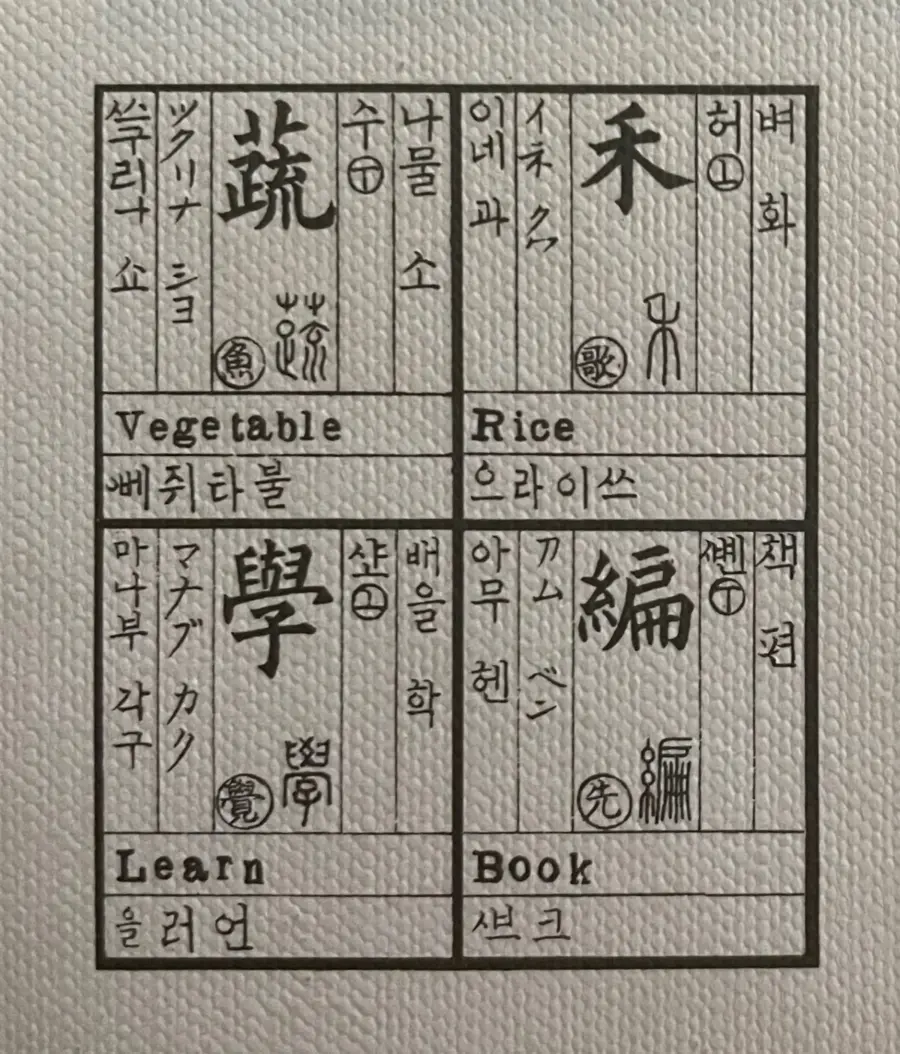 벼 화
허 丄
禾
禾
歌
イネ クワ
이네 과
Rice
으라이쓰
나물 소
수 丅
蔬
蔬
魚
ツクリナ ショ
쇼
Vegetable
책 편
丅
編
編
先
アム ヘン
아무 헨
Book
배을 학
學
學
覺
マナブ カク
마나부 각구
Learn
을러언